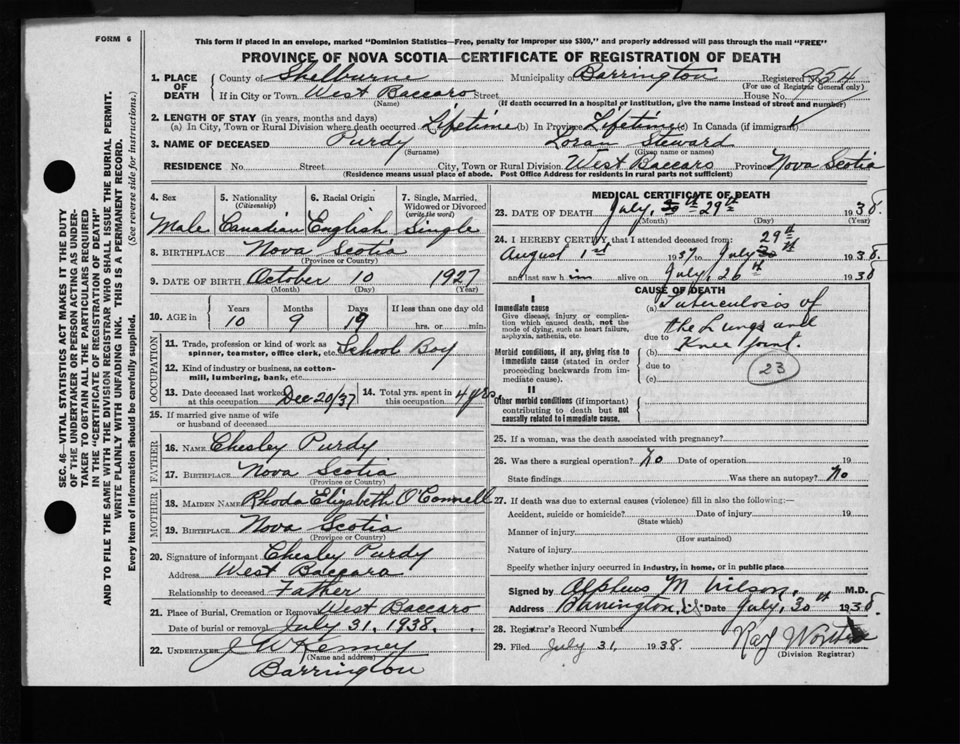 FORM 6
This form if placed in an envelope, marked "Dominion Statistics—Free, penalty for improper use $300," and properly addressed will pass through the mail "FREE"
PROVINCE OF NOVA SCOTIA—CERTIFICATE OF REGISTRATION OF DEATH
SEC. 46—VITAL STATISTICS ACT MAKES IT THE DUTY
OF THE UNDERTAKER OR PERSON ACTING AS UNDER-
TAKER TO OBTAIN ALL THE PARTICULARS REQUIRED
IN THE "CERTIFICATE OF REGISTRATION OF DEATH"
AND TO FILE THE SAME WITH THE DIVISION REGISTRAR WHO SHALL ISSUE THE BURIAL PERMIT.
WRITE PLAINLY WITH UNFADING INK. THIS IS A PERMANENT RECORD.
Every item of information should be carefully supplied. (See reverse side for instructions.)
1. PLACE OF DEATH
County of Shelburne Municipality of Barrington Registered No. 354
(For use of Registrar General only)
If in City or Town West Baccaro Street House No.
(Name) (If death occurred in a hospital or institution, give the name instead of street and number)
2. LENGTH OF STAY (in years, months and days)
(a) In City, Town or Rural Division where death occurred Lifetime (b) In Province Lifetime (c) In Canada (if immigrant)
3. NAME OF DECEASED Purdy Loran Steward
(Surname) (Given name or names)
RESIDENCE No. Street City, Town or Rural Division West Baccaro Province Nova Scotia
(Residence means usual place of abode. Post Office Address for residents in rural parts not sufficient)
4. Sex 5. Nationality 6. Racial Origin 7. Single, Married,
(Citizenship) Widowed or Divorced
(write the word)
Male Canadian English Single
8. BIRTHPLACE Nova Scotia
(Province or Country)
9. DATE OF BIRTH October 10 1927
(Month) (Day) (Year)
10. AGE in Years Months Days If less than one day old
10 9 19 hrs. or min.
OCCUPATION
11. Trade, profession or kind of work as
spinner, teamster, office clerk, etc. School Boy
12. Kind of industry or business, as cotton-
mill, lumbering, bank, etc.
13. Date deceased last worked at this occupation Dec 20/37
14. Total yrs. spent in this occupation 4 yrs
15. If married give name of wife
or husband of deceased
FATHER
16. NAME Chesley Purdy
17. BIRTHPLACE Nova Scotia
(Province or Country)
MOTHER
18. MAIDEN NAME Rhoda Elizabeth O'Connell
19. BIRTHPLACE Nova Scotia
(Province or Country)
20. Signature of informant Chesley Purdy
Address West Baccaro
Relationship to deceased Father
21. Place of Burial, Cremation or Removal West Baccaro
Date of burial or removal July 31, 1938.
22. UNDERTAKER J W Kenney
(Name and address)
Barrington
MEDICAL CERTIFICATE OF DEATH
23. DATE OF DEATH July, 29th 1938.
(Month) (Day) (Year)
24. I HEREBY CERTIFY, that I attended deceased from:
29th
August 1st 1937 to July 30th 1938
and last saw him alive on July, 26th 1938
CAUSE OF DEATH
I
Immediate cause
Give disease, injury or complica-
tion which caused death, not the
mode of dying, such as heart failure,
asphyxia, asthenia, etc.
(a) Tuberculosis of
the Lungs and
due to Knee joint.
Morbid conditions, if any, giving rise to
immediate cause (stated in order
proceeding backwards from im-
mediate cause).
(b)
due to
(c)
23
II
Other morbid conditions (if important)
contributing to death but not
causally related to immediate cause.
25. If a woman, was the death associated with pregnancy?
26. Was there a surgical operation? No Date of operation 19
State findings Was there an autopsy? No
27. If death was due to external causes (violence) fill in also the following:—
Accident, suicide or homicide? Date of injury 19
(State which)
Manner of injury
(How sustained)
Nature of injury
Specify whether injury occurred in industry, in home, or in public place
Signed by Alpheus M. Wilson, M.D.
Address Barrington, Date July, 30th 1938
28. Registrar's Record Number
29. Filed July 31, 1938. Ray
(Division Registrar)